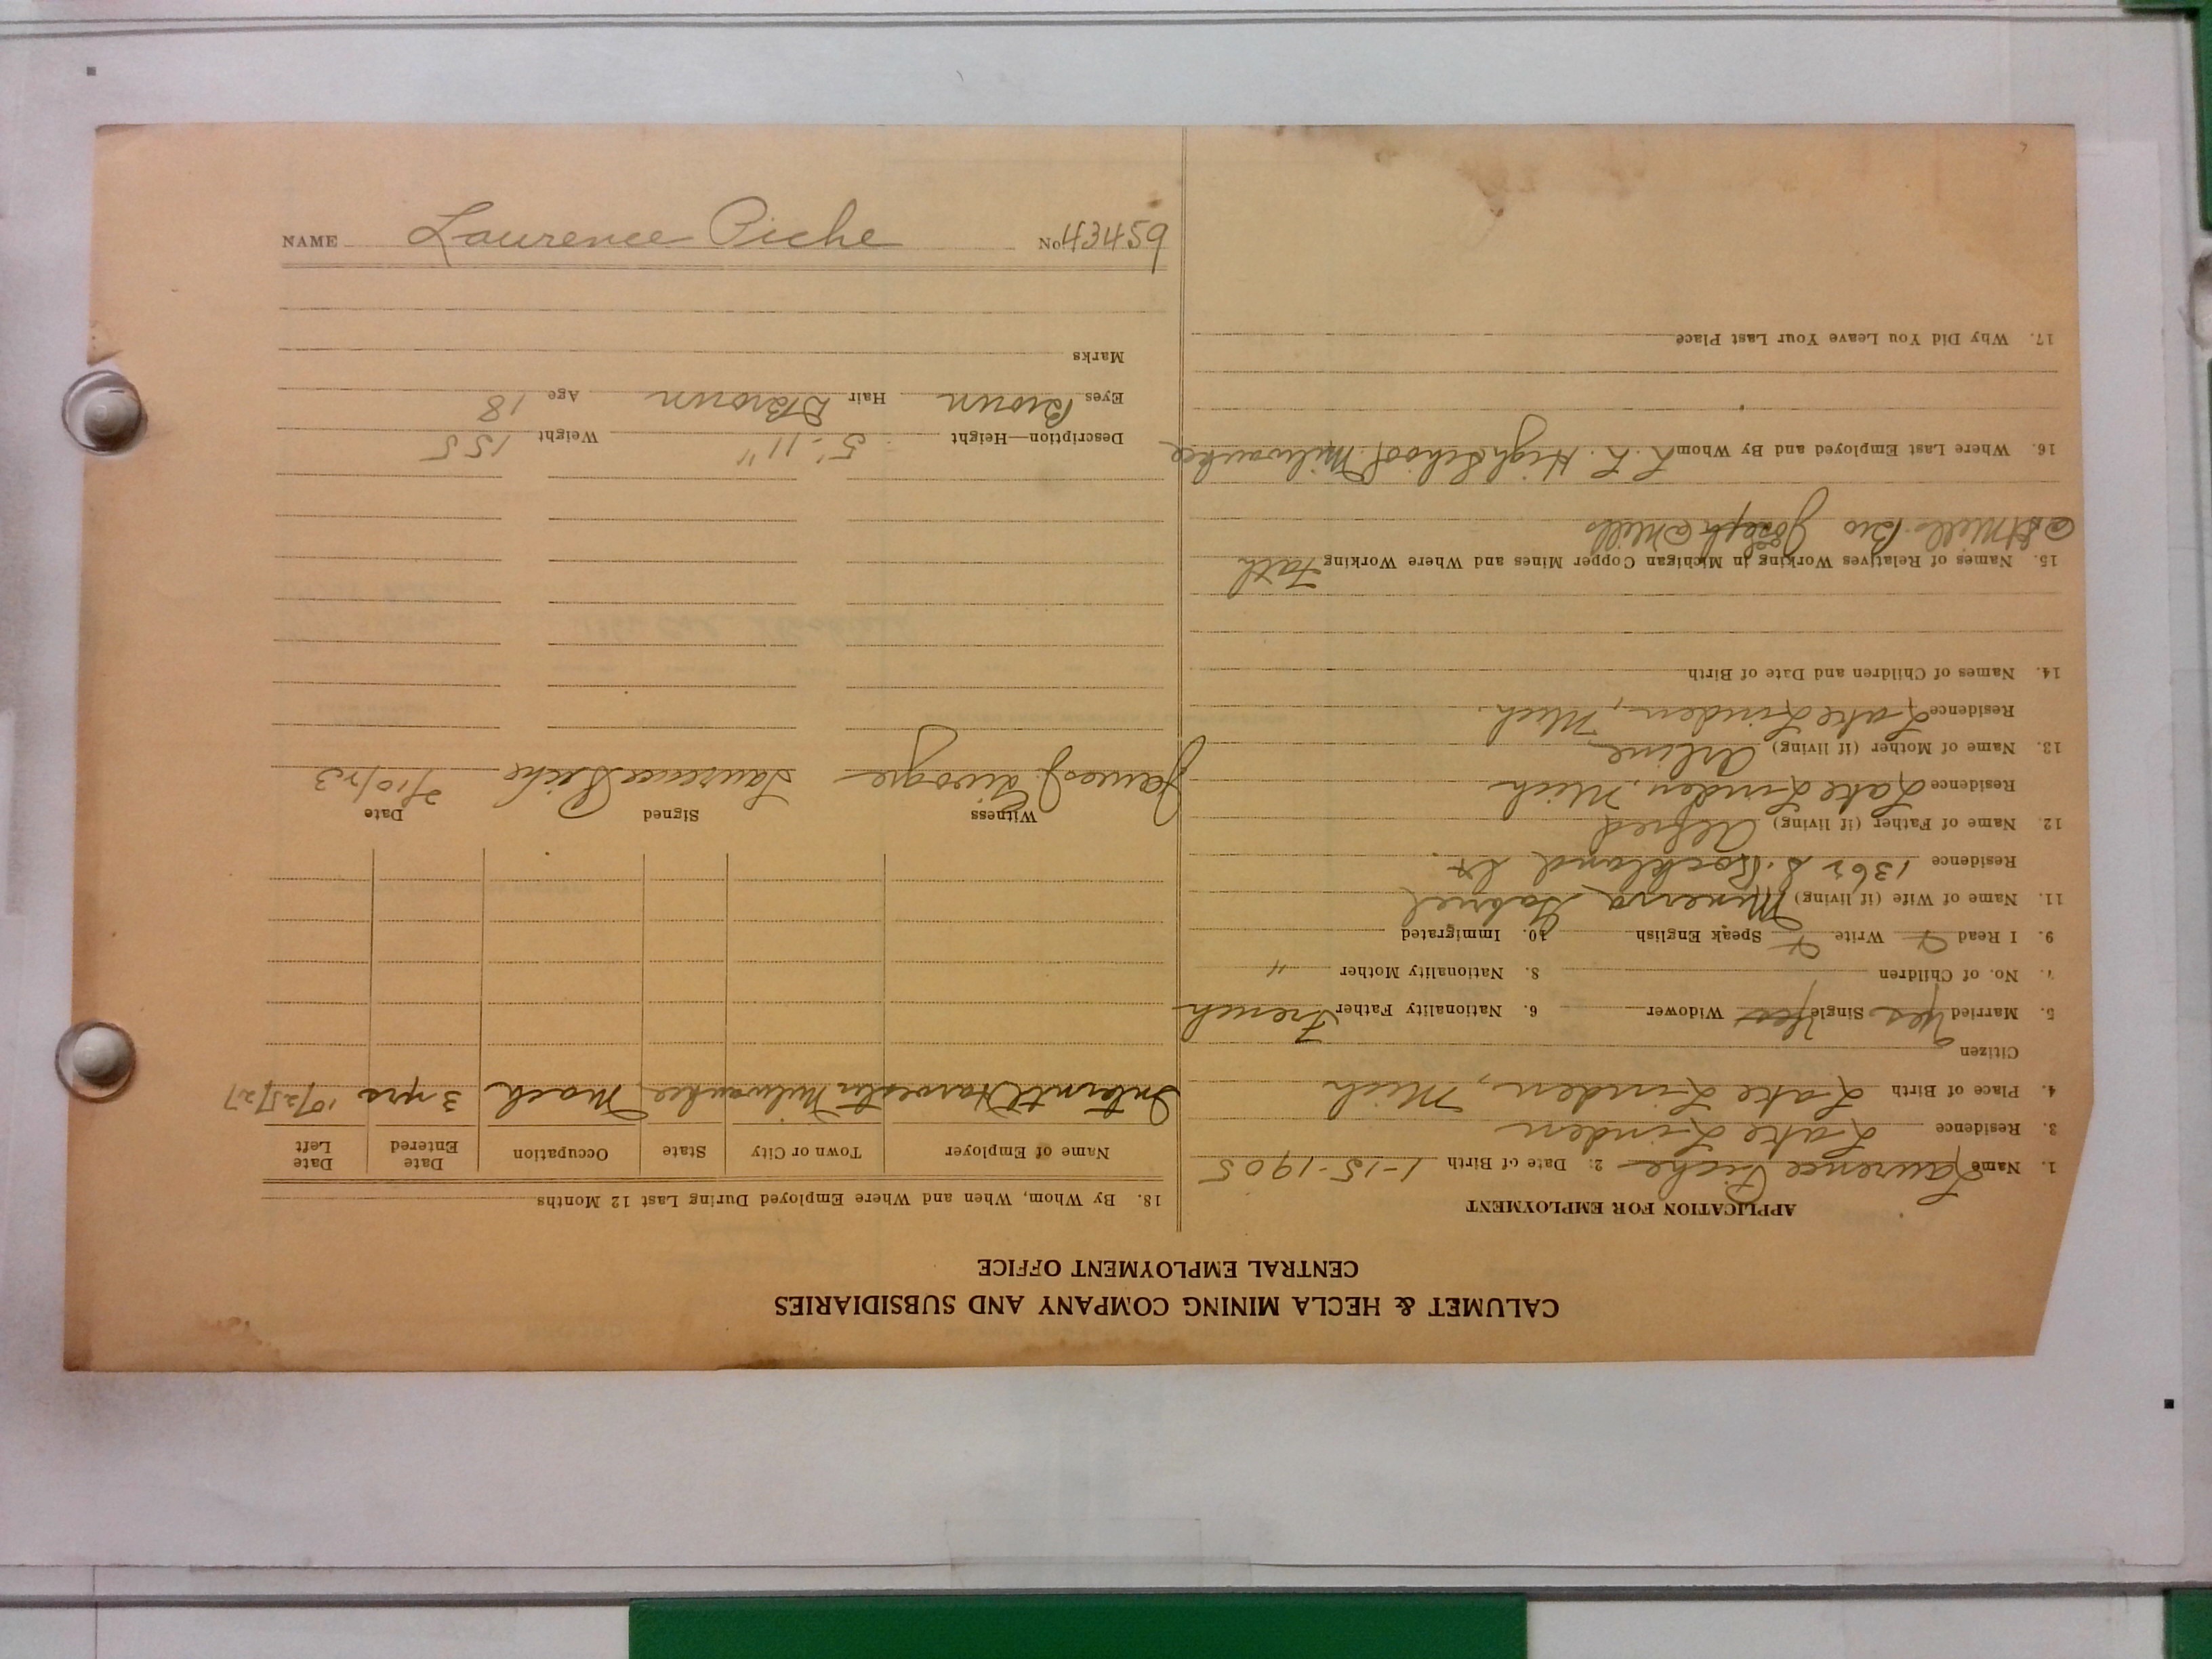 NAME Laurence Piche No 43459
CALUMET & HECLA MINING COMPANY AND SUBSIDIARIES
CENTRAL EMPLOYMENT OFFICE
APPLICATION FOR EMPLOYMENT
1. Name Laurence Piche 2. Date of Birth 1-15-1905
3. Residence Lake Linden
4. Place of Birth Lake Linden, Mich
Citizen
5. Married Yes Single Yes Widower 6. Nationality Father French
7. No. of Children 8. Nationality Mother "
9. I Read Write Speak English 10. Immigrated
11. Name of Wife (if living) Minerva Gabriel
Residence 1362 S. Rockland St.
12. Name of Father (if living) Alfred
Residence Lake Linden, Mich
13. Name of Mother (if living) Arline
Residence Lake Linden, Mich.
14. Names of Children and Date of Birth
15. Names of Relatives Working in Michigan Copper Mines and Where Working Fath
Mills Bro Joseph @ Mills
16. Where Last Employed and By Whom L. L. High School Milwaukee
17. Why Did You Leave Your Last Place
18. By Whom, When and Where Employed During Last 12 Months
Name of Employer Town or City State Occupation Date Entered Date Left
Internt'l Harvester Milwaukee Mach 3 yrs 10/25/27
Witness Signed Date
James J Laurence Piche /10/23
Description—Height 5'-11" Weight 155
Eyes Brown Hair D Brown Age 18
Marks